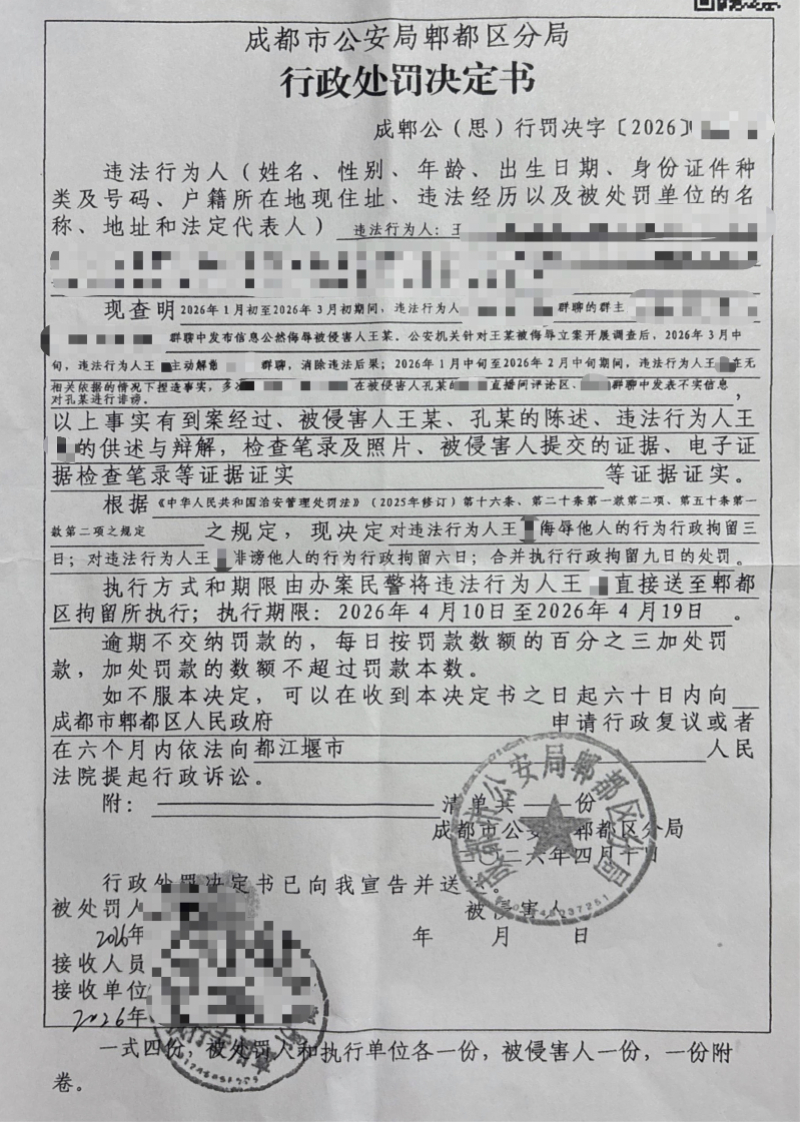 成都市公安局郫都区分局
行政处罚决定书
成郫公（思）行罚决字〔2026〕
违法行为人（姓名、性别、年龄、出生日期、身份证件种
类及号码、户籍所在地现住址、违法经历以及被处罚单位的名
称、地址和法定代表人）违法行为人：王
现查明2026年1月初至2026年3月初期间，违法行为人 群聊的群主
群聊中发布信息公然侮辱被侵害人王某。公安机关针对王某被侮辱立案开展调查后，2026年3月中
旬，违法行为人王 主动解散 群聊，消除违法后果；2026年1月中旬至2026年2月中旬期间，违法行为人王 在无
相关依据的情况下捏造事实，多次 在被侵害人孔某 直播间评论区、 群聊中发表不实信息
对孔某进行诽谤。，
以上事实有到案经过、被侵害人王某、孔某的陈述、违法行为人王
的供述与辩解，检查笔录及照片、被侵害人提交的证据、电子证
据检查笔录等证据证实 等证据证实。
根据《中华人民共和国治安管理处罚法》（2025年修订）第十六条、第二十条第一款第二项、第五十条第一
款第二项之规定 之规定，现决定对违法行为人王 侮辱他人的行为行政拘留三
日；对违法行为人王 诽谤他人的行为行政拘留六日；合并执行行政拘留九日的处罚。
执行方式和期限由办案民警将违法行为人王 直接送至郫都
区拘留所执行；执行期限：2026年4月10日至2026年4月19日。
逾期不交纳罚款的，每日按罚款数额的百分之三加处罚
款，加处罚款的数额不超过罚款本数。
如不服本决定，可以在收到本决定书之日起六十日内向
成都市郫都区人民政府 申请行政复议或者
在六个月内依法向都江堰市 人民
法院提起行政诉讼。
附： 清单共 份
成都市公安 郫都区分局
二〇二六年四月十日
成都市公安局郫都区分局
行政处罚决定书已向我宣告并送达。
被处罚人 被侵害人
2026年 年 月 日
接收人员
接收单位
2026年
执行专用章
一式四份，被处罚人和执行单位各一份，被侵害人一份，一份附
卷。